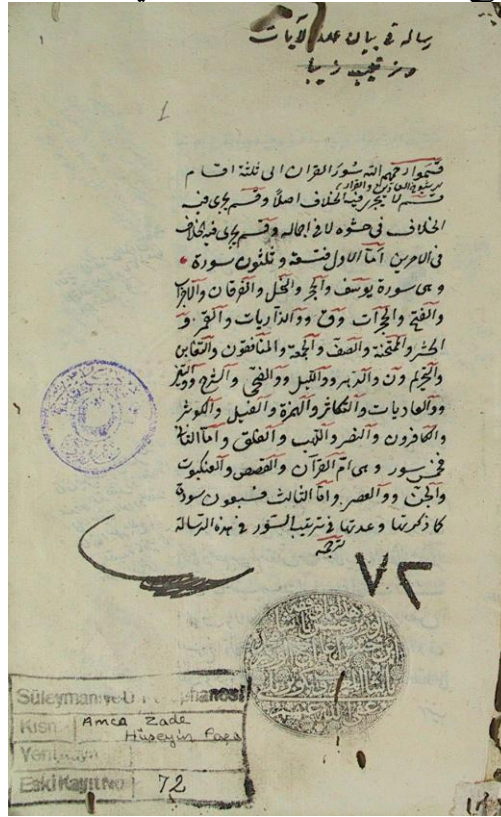 رساله في بيان عدد الآيات
1
قسموا رحمهم الله سُورَ القران الى ثلثة اقسام
قسم لا يجرى فيه الخلاف اصلاً وقسم يجرى فيه
الخلاف فى حشوه لا فى اجماله وقسم يجرى فيه الخلاف
فى الامرين امّا الاول فتسعة وثلثون سورة
وهى سورة يوسف والحجر والنحل والفرقان والاحزاب
والفتح والحجرات وق ووالذاريات والقمر و
الحشر والممتحنة والصف والجمعة والمنافقون والتغابن
والتحريم ون والدهر ووالليل ووالضحى والشرح ووالتين
ووالعاديات والتكاثر والهمزة والفيل والكوثر
والكافرون والنصر واللهب والفلق وامّا الثانى
فخمس سور وهى امّ القرآن والقصص والعنكبوت
والجن ووالعصر وامّا الثالث فسبعون سورة
كما ذكرتها وعدتها فى ترتيب السّور فى هذه الرسالة
٧٢
Süleymaniye U Kütüphanesi
Kısmı Amca Zade
Hüseyin Paşa
Eski Kayıt No 72